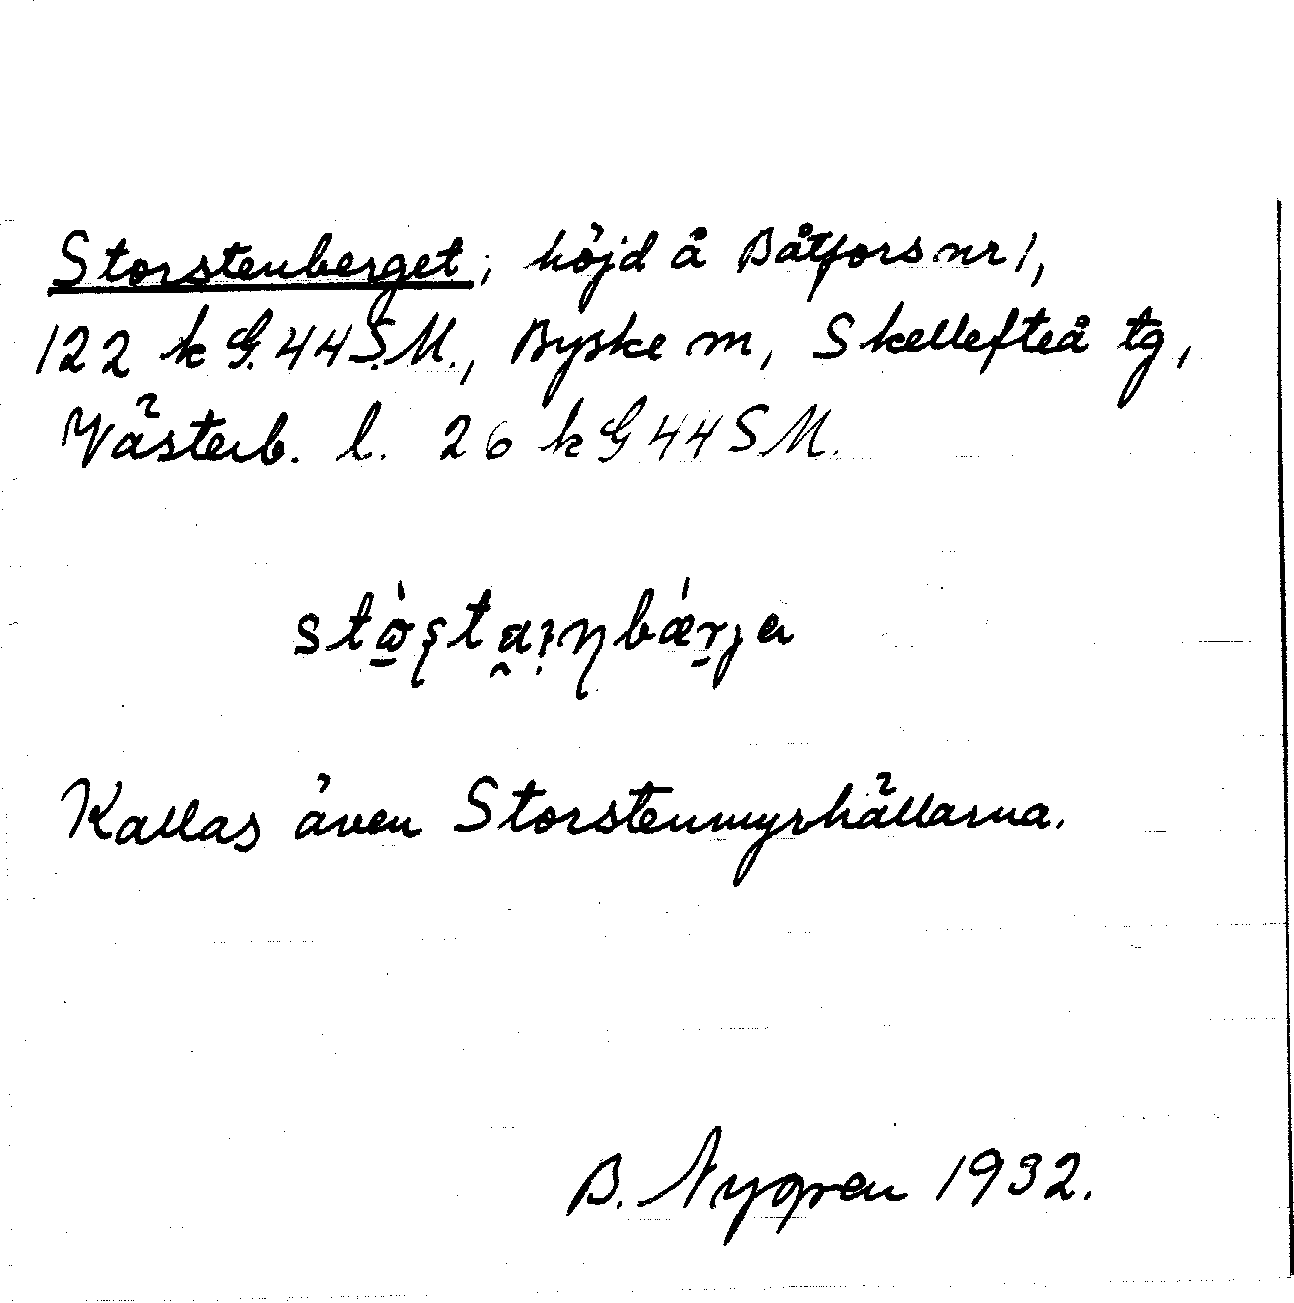 Storstenberget, höjd å Båtfors nr 1,
122 k G. 44 S.M., Byske m, Skellefteå tg,
Västerb. l. 26 k G 44 S M.
Kallas även Storstenmyrhällarna.
B. Nygren 1932.